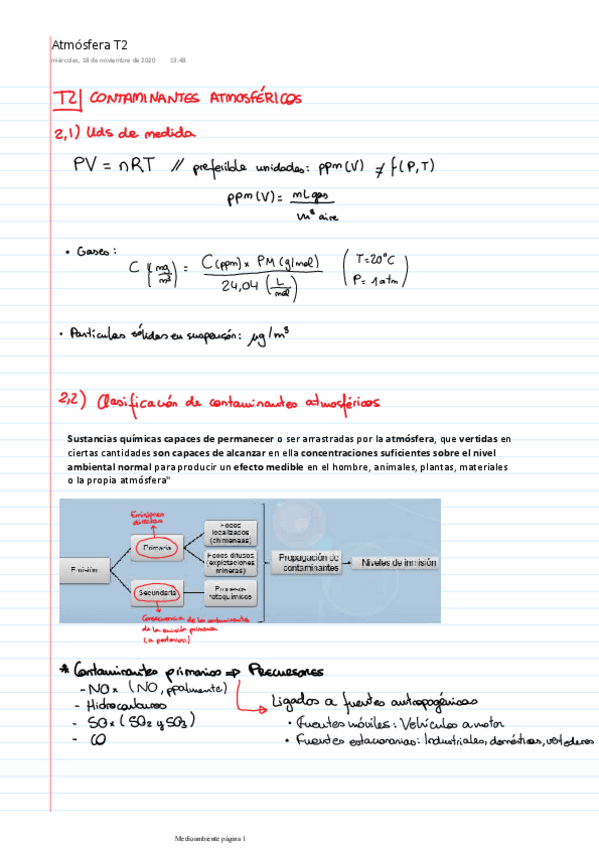 Atmósfera T2
miércoles, 18 de noviembre de 2020 13:48
T2| CONTAMINANTES ATMOSFÉRICOS
2,1) Uds de medida
PV = nRT // preferible unidades: ppm(V) ≠ f(P,T)
ppm(V) = mL gas / m³ aire
• Gases:
C (mg/m³) = C(ppm) x PM (g/mol) / 24,04 (L/mol) (T=20°C
P= 1atm)
• Partículas sólidas en suspensión: μg/m³
2,2) Clasificación de contaminantes atmosféricos
Sustancias químicas capaces de permanecer o ser arrastradas por la atmósfera, que vertidas en
ciertas cantidades son capaces de alcanzar en ella concentraciones suficientes sobre el nivel
ambiental normal para producir un efecto medible en el hombre, animales, plantas, materiales
o la propia atmósfera"
Emisiones
directas
Emisión
Primaria
Focos
localizados
(chimeneas)
Focos difusos
(explotaciones
mineras)
Secundaria
Procesos
fotoquímicos
Propagación de
contaminantes
Niveles de inmisión
Consecuencia de los contaminantes
de la emisión primaria
(a posteriori)
* Contaminantes primarios => PRECURSORES
- NOx (NO, ppalmente)
- Hidrocarburos
- SOx (SO2 y SO3)
- CO
Ligados a fuentes antropogénicas
• Fuentes móviles: Vehículos a motor
• Fuentes estacionarias: Industriales, domésticas, vertederos
Medioambiente página 1